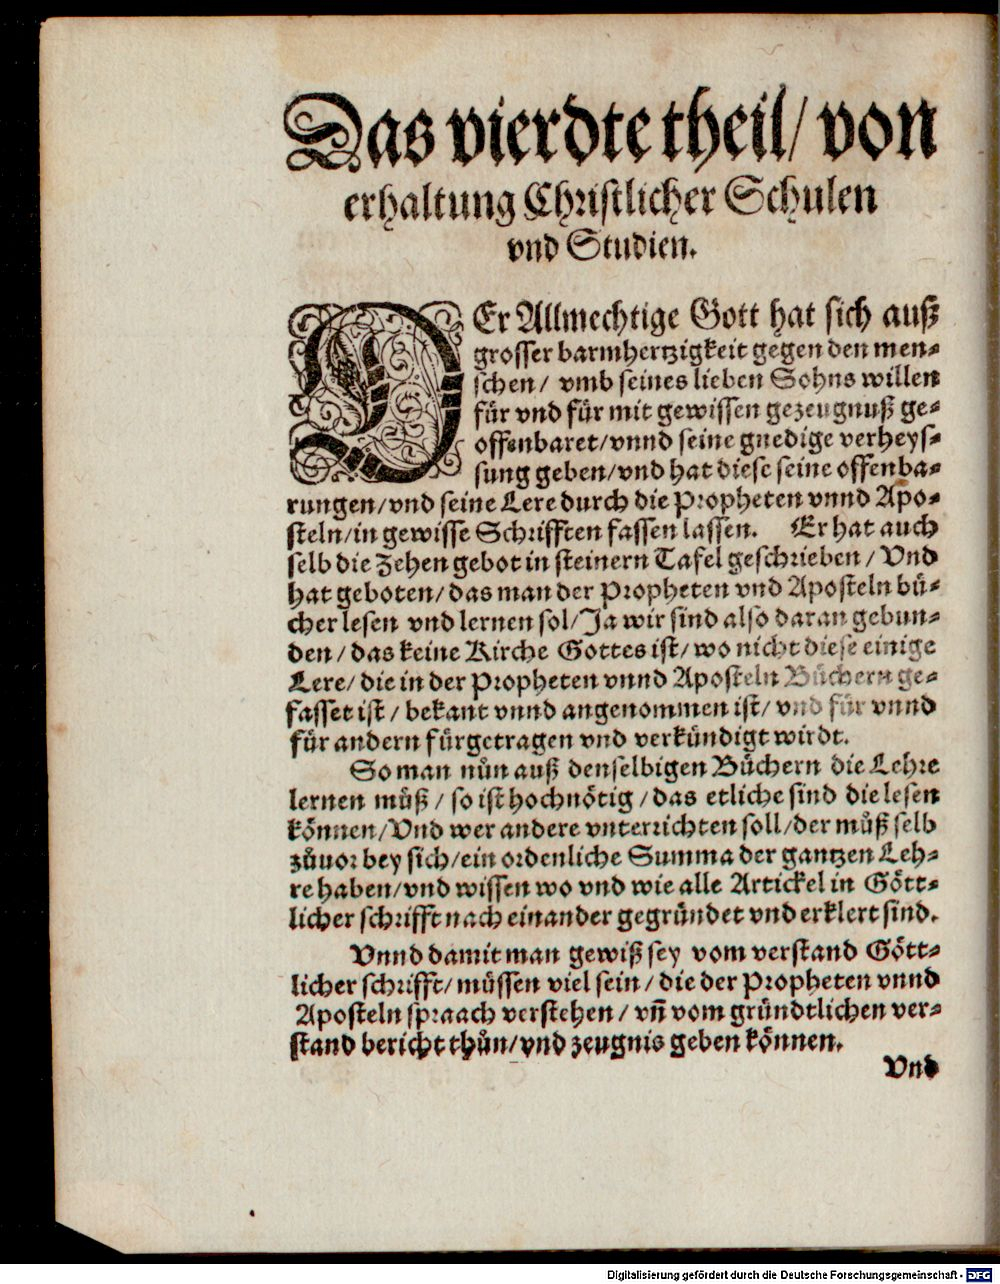 Das vierdte theil/ von
erhaltung Christlicher Schulen
vnd Studien.
DEr Allmechtige Gott hat sich auß
grosser barmhertzigkeit gegen den men-
schen/ vmb seines lieben Sohns willen
für vnd für mit gewissen gezeugnuß ge-
offenbaret/vnnd seine gnedige verheys-
sung geben/vnd hat diese seine offenba-
rungen/vnd seine Lere durch die Propheten vnnd Apo-
steln/in gewisse Schrifften fassen lassen. Er hat auch
selb die Zehen gebot in steinern Tafel geschrieben/ Vnd
hat geboten/das man der Propheten vnd Aposteln bü-
cher lesen vnd lernen sol/Ja wir sind also daran gebun-
den/das keine Kirche Gottes ist/wo nicht diese einige
Lere/die in der Propheten vnnd Aposteln Büchern ge-
fasset ist/ bekant vnnd angenommen ist/ vnd für vnnd
für andern fürgetragen vnd verkündigt wirdt.
So man nůn auß denselbigen Büchern die Lehre
lernen můß/ so ist hochnötig/das etliche sind die lesen
können/Vnd wer andere vnterrichten soll/der můß selb
zůuor bey sich/ein ordenliche Summa der gantzen Leh-
re haben/vnd wissen wo vnd wie alle Artickel in Gött-
licher schrifft nach einander gegründet vnd erklert sind.
Vnnd damit man gewiß sey vom verstand Gött-
licher schrifft/müssen viel sein/die der Propheten vnnd
Aposteln spraach verstehen/ vñ vom gründtlichen ver-
stand bericht thůn/vnd zeugnis geben können.
Vnd
Digitalisierung gefördert durch die Deutsche Forschungsgemeinschaft - DFG